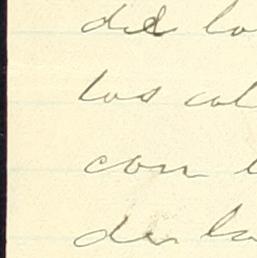 del lo
los col
con
den la